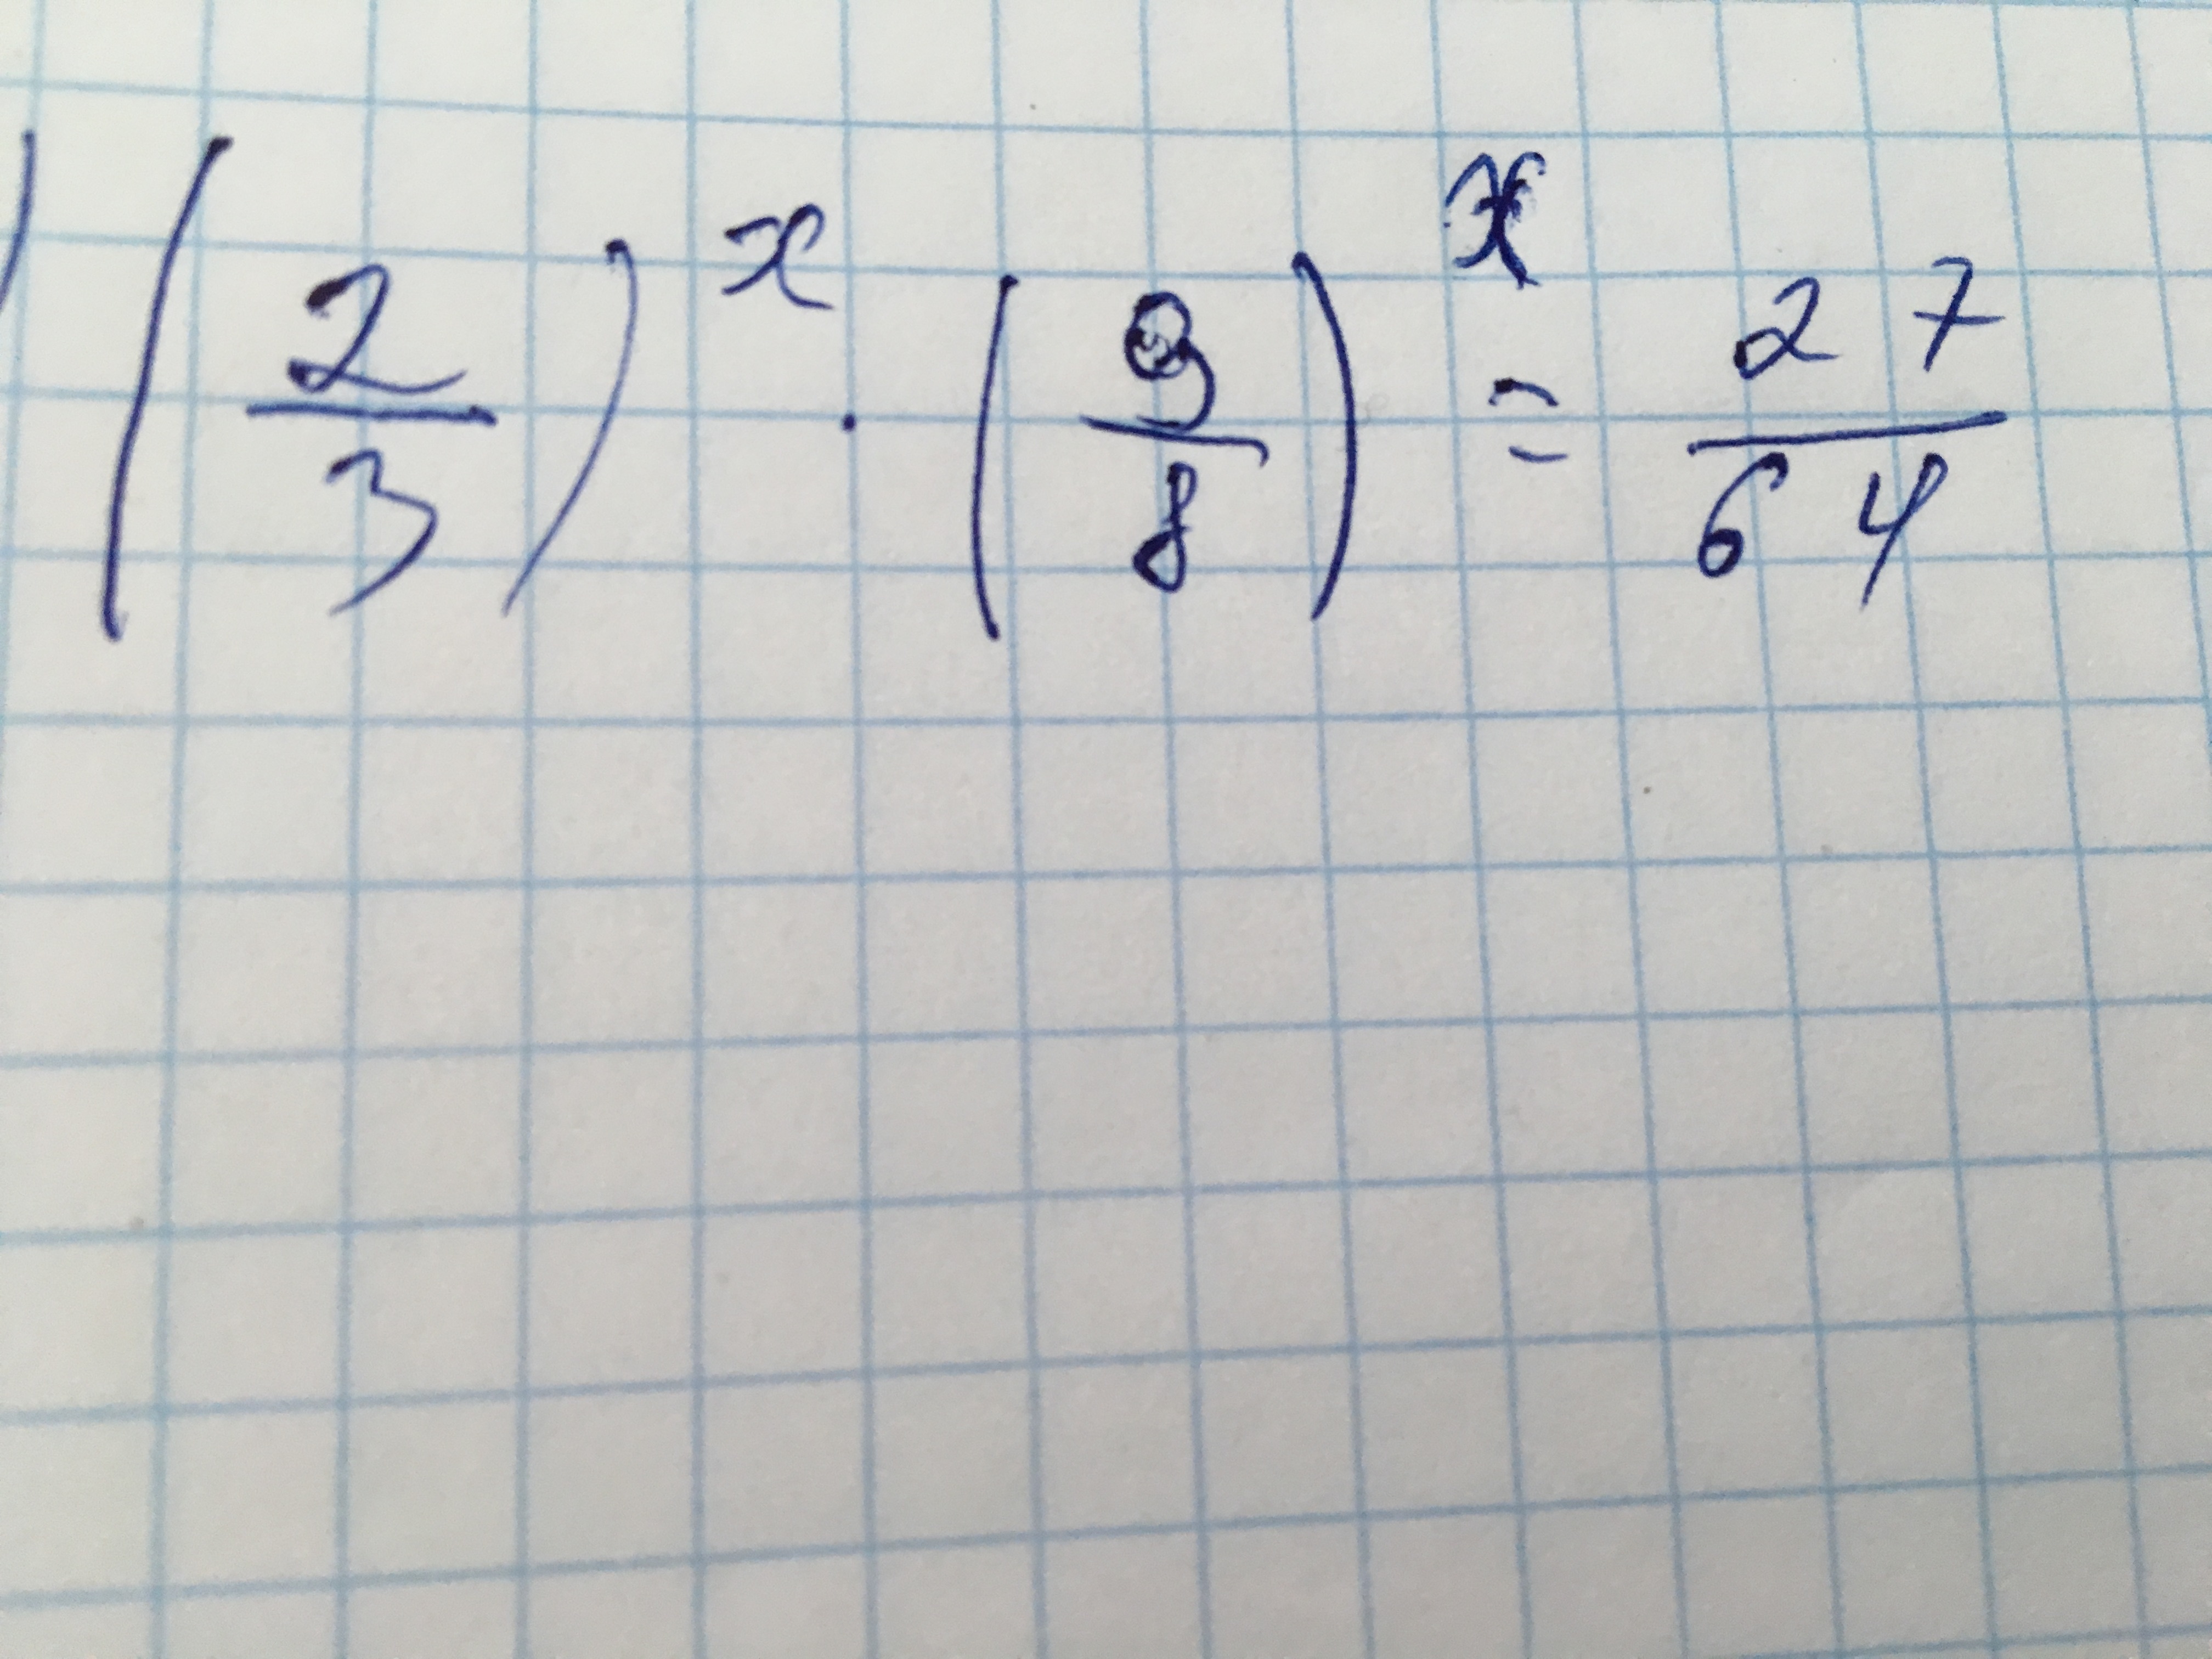 ) (2/3)^x · (9/8)^x = 27/64